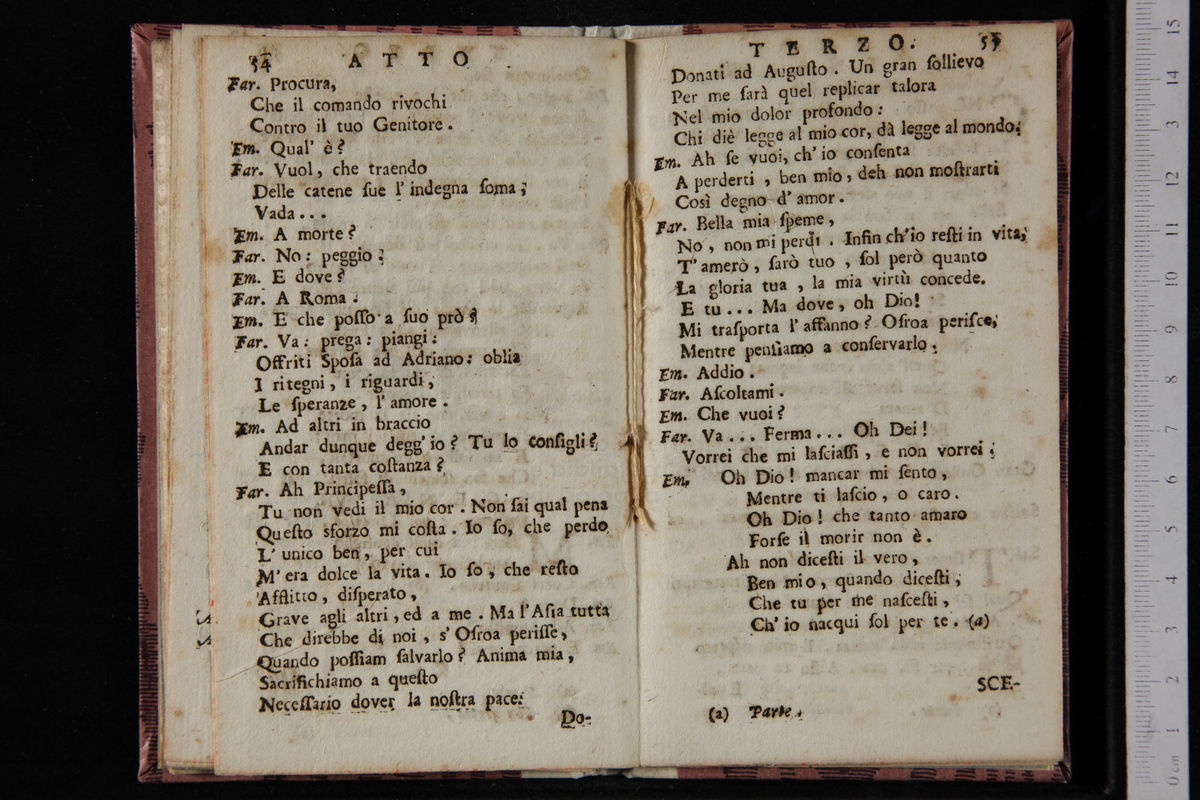 54 ATTO
Far. Procura,
Che il comando rivochi
Contro il tuo Genitore.
Em. Qual' è?
Far. Vuol, che traendo
Delle catene ſue l' indegna ſoma;
Vada...
Em. A morte?
Far. No: peggio:
Em. E dove?
Far. A Roma.
Em. E che poſſo a ſuo prò?
Far. Va: prega: piangi:
Offriti Spoſa ad Adriano: oblia
I ritegni, i riguardi,
Le ſperanze, l'amore.
Em. Ad altri in braccio
Andar dunque degg'io? Tu lo conſigli?
E con tanta coſtanza?
Far. Ah Principeſſa,
Tu non vedi il mio cor. Non ſai qual pena
Queſto sforzo mi coſta. Io ſo, che perdo
L' unico ben, per cui
M'era dolce la vita. Io ſo, che reſto
Afflitto, diſperato,
Grave agli altri, ed a me. Ma l'Aſia tutta
Che direbbe di noi, s'Oſroa periſſe,
Quando poſſiam ſalvarlo? Anima mia,
Sacrifichiamo a queſto
Neceſſario dover la noſtra pace.
Do-
TERZO. 55
Donati ad Auguſto. Un gran ſollievo
Per me ſarà quel replicar talora
Nel mio dolor profondo:
Chi diè legge al mio cor, dà legge al mondo.
Em. Ah ſe vuoi, ch'io conſenta
A perderti, ben mio, deh non moſtrarti
Così degno d'amor.
Far. Bella mia ſpeme,
No, non mi perdi. Infin ch'io reſti in vita,
T'amerò, ſarò tuo, ſol però quanto
La gloria tua, la mia virtù concede.
E tu... Ma dove, oh Dio!
Mi traſporta l'affanno? Oſroa periſce,
Mentre penſiamo a conſervarlo.
Em. Addio.
Far. Aſcoltami.
Em. Che vuoi?
Far. Va... Ferma... Oh Dei!
Vorrei che mi laſciaſſi, e non vorrei.
Em. Oh Dio! mancar mi ſento,
Mentre ti laſcio, o caro.
Oh Dio! che tanto amaro
Forſe il morir non è.
Ah non diceſti il vero,
Ben mio, quando diceſti,
Che tu per me naſceſti,
Ch'io nacqui ſol per te. (a)
SCE-
(a) Parte.
0 cm 1 2 3 4 5 6 7 8 9 10 11 12 3 14 15